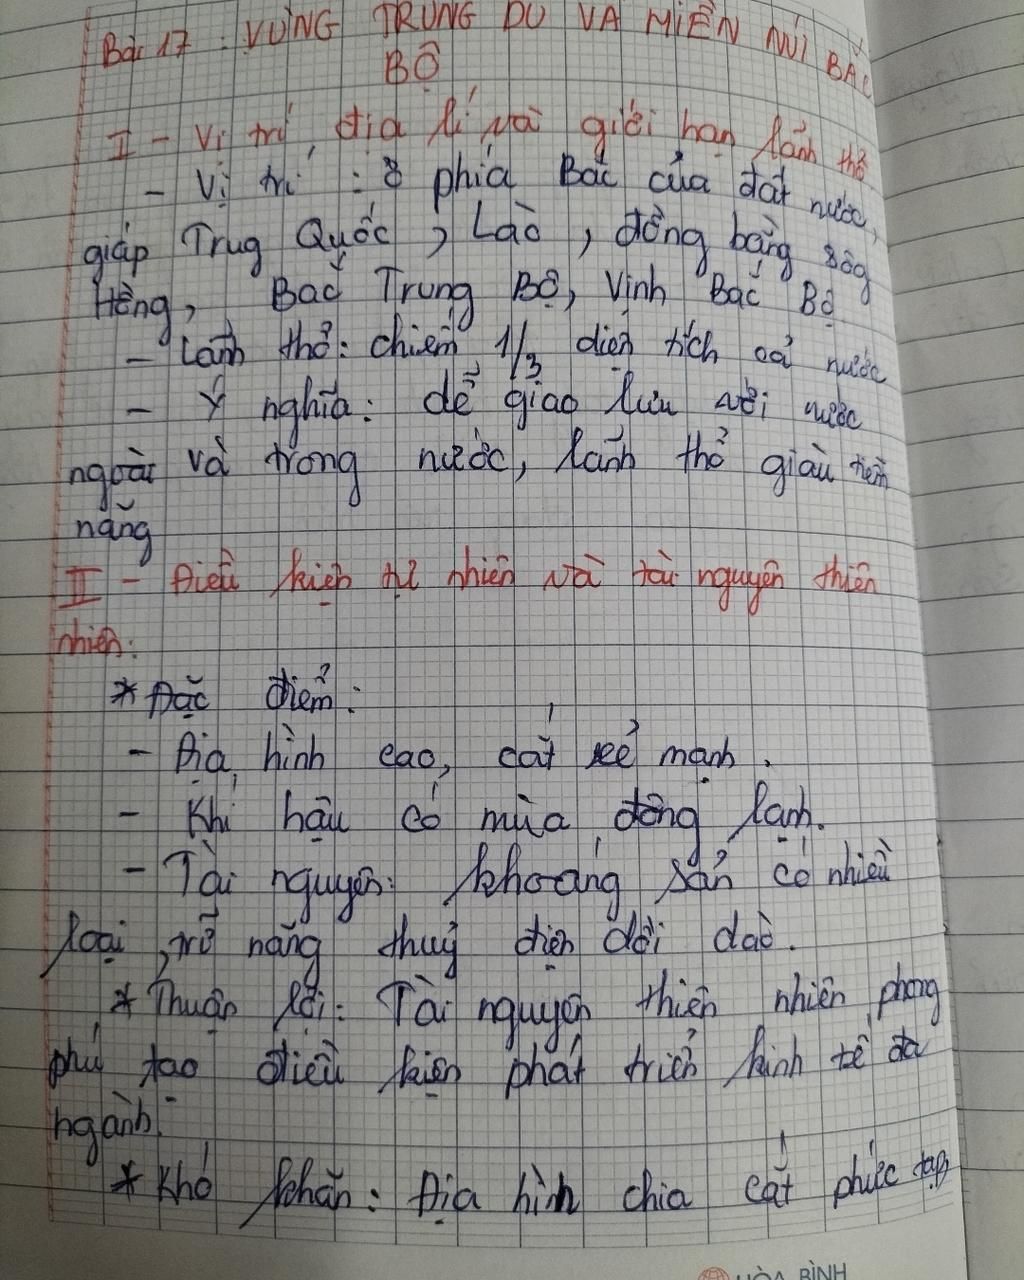 Bài 17 : VÙNG TRUNG DU VÀ MIỀN NÚI BẮC
BỘ
I - Vị trí địa lí và giới hạn lãnh thổ
- Vị trí : ở phía Bắc của đất nước,
giáp Trug Quốc, Lào, đồng bằng sôg
Hồng, Bắc Trung Bộ, Vịnh Bắc Bộ
- Lãnh thổ: chiếm 1/3 diện tích cả nước
- Ý nghĩa: dễ giao lưu với nước
ngoài và trong nước, lãnh thổ giàu tiềm
năng
II - Điều kiện tự nhiên và tài nguyên thiên
nhiên:
* Đặc điểm:
- Địa hình cao, cắt xẻ mạnh.
- Khí hậu có mùa đông lạnh.
- Tài nguyên: khoáng sản có nhiều
loại, trữ năng thuỷ điện dồi dào.
* Thuận lợi: Tài nguyên thiên nhiên phong
phú tạo điều kiện phát triển kinh tế đa
ngành.
* Khó khăn: Địa hình chia cắt phức tạp
HÒA BÌNH